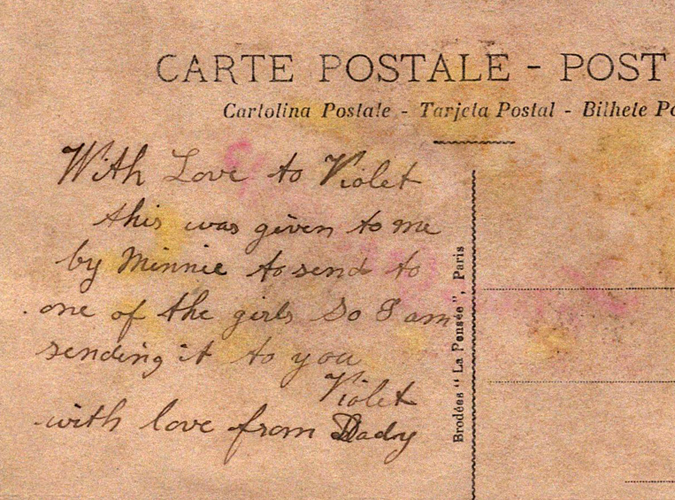 CARTE POSTALE - POST
Cartolina Postale - Tarjeta Postal - Bilhete Po
With Love to Violet
this was given to me
by Minnie to send to
one of the girls So I am
sending it to you
Violet
with love from Dady
Brodées " La Pensée ", Paris